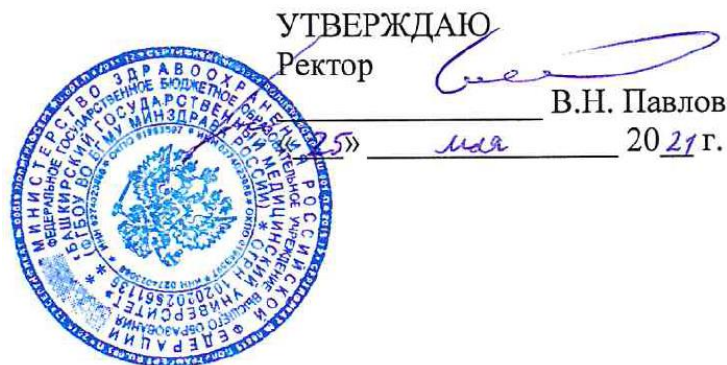 УТВЕРЖДАЮ
Ректор
В.Н. Павлов
«25» мая 2021 г.
МИНИСТЕРСТВО ЗДРАВООХРАНЕНИЯ РОССИЙСКОЙ ФЕДЕРАЦИИ
ФЕДЕРАЛЬНОЕ ГОСУДАРСТВЕННОЕ БЮДЖЕТНОЕ ОБРАЗОВАТЕЛЬНОЕ УЧРЕЖДЕНИЕ ВЫСШЕГО ОБРАЗОВАНИЯ
"БАШКИРСКИЙ ГОСУДАРСТВЕННЫЙ МЕДИЦИНСКИЙ УНИВЕРСИТЕТ"
(ФГБОУ ВО БГМУ МИНЗДРАВА РОССИИ) * ОГРН 1020202561136